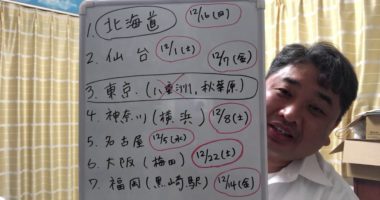 1. 北海道 12/16(日)
2. 仙台 12/1(土) 12/7(金)
3. 東京.(八重洲, 秋葉原.)
4. 神奈川(横浜) 12/8(土)
5. 名古屋 12/5(水)
6. 大阪(梅田) 12/22(土)
7. 福岡(黒崎駅) 12/14(金)